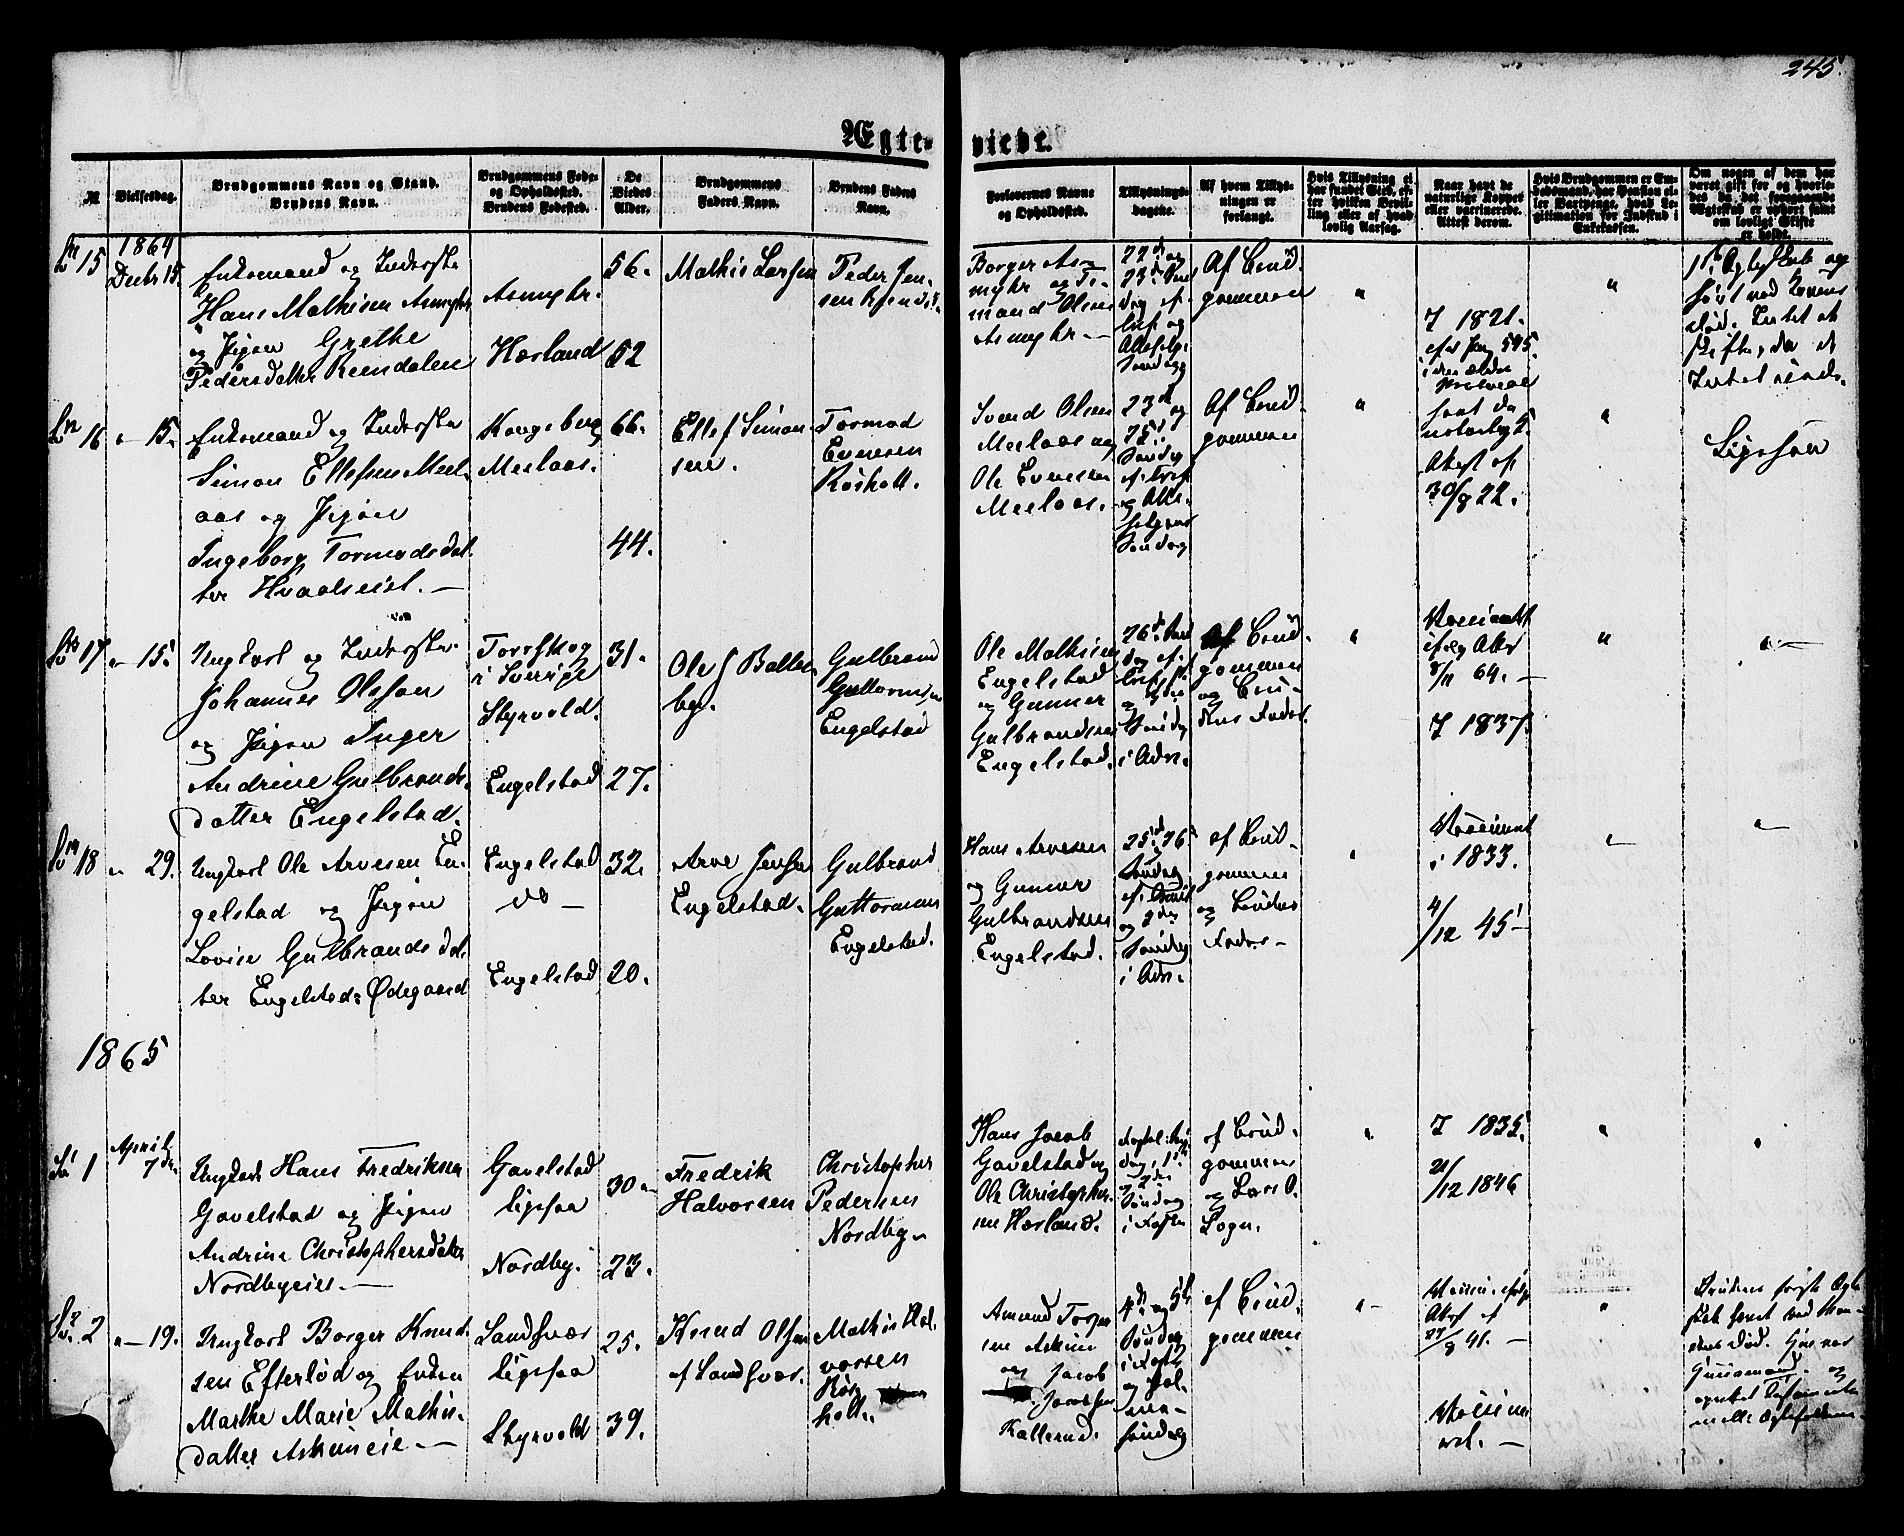 245.
Ægte-
viede.
№
Vielsesdag.
Brudgommens Navn og Stand.
Brudens Navn.
Brudgommens Føde-
og Opholdssted.
Brudens Fødested.
De
Viedes
Alder.
Brudgommens
Faders Navn.
Brudens Faders
Navn.
Forlovernes Navne
og Opholdssted.
Tillysnings-
dagene.
Af hvem Tillys-
ningen er
forlangt.
Hvis Tillysning ei
har fundet Sted, ef-
ter hvilken Bevil-
ling eller af hvad
lovlig Aarsag.
Naar havt de
naturlige Kopper
eller vaccinerede.
Attest derom.
Hvis Brudgommen er Em-
bedsmand, har Pension el-
ler Vartpenge, hvad Le-
gitimation for Indskud i
Enkekassen.
Om nogen af dem har
været gift før og hvorle-
des da det foregaaende
Ægteskab er ophørt samt
om lovligt Skifte
er holdt.
15
1864
Decbr 15.
Enkemand og Inderste
Hans Mathisen Asmyhr
og Pigen Grethe
Pedersdatter Reendalen
Asmyhr.
Hæsland
56.
52
Mathis Larsen
Peder Jen-
sen
Borger As-
myhr og
mand Olsen
Asmyhr —
22de og
23de
Af Brud-
gommen
"
7 1821.
Pag. 595.
"
16 " 15.
Enkemand og Inderste
Simon Ellefsen Meel-
aas og Pigen
Ingeborg Tormodsdat-
ter Hvaalseiet. —
Kongsberg
Meelaas.
66.
44.
Ellef Simon-
sen.
Tormod
Evensen
Røsholt.
Svend Olsen
Meelaas og
Ole Evensen
Meelaas.
23de og
25de
Søndag
Søndag
Af Brud-
gommen
"
30/8 22.
"
Ligesaa
17 " 15.
Ungkarl og Inderste
Johannes Olsson
og Pigen Inger
Andrine Gulbrands-
datter Engelstad.
Torsskog
i Sverige
Styrvold.
Engelstad
31.
27.
Ole J Balle-
by.
Gulbrand
Guttormsen
Engelstad
Ole Mathisen
Engelstad
og Gunner
Gulbrandsen
Engelstad.
26de
Søndag
i Adv.
Af Brud-
gommen
og Bru-
dens Fader.
"
Vaccineret
ifølg Attest
8/11 64. —
7 1837.
"
"
18 " 29.
Ungkarl Ole Arvesen En-
gelstad og Pigen
Lovise Gulbrandsdat-
ter Engelstad: Ødegaard
Engelstad
do —
Engelstad
32.
20.
Arve Jensen
Engelstad.
Gulbrand
Guttormsen
Engelstad.
Hans Arvesen
og Gunner
Gulbrandsen
Engelstad.
25de 26de
Søndag
og 3die
Søndag
i Adv.
af Brud-
gommen
og Brudens
Fader —
"
Vaccineret
i 1833.
4/12 45 —
"
"
1865
1
April
7de
Ungkarl Hans Fredriksen
Gavelstad og Pigen
Andrine Christophersdatter
Nordbyeiet —
Gavelstad
ligesaa
Nordby.
30 —
23.
Fredrik
Halvorsen
Christopher
Pedersen
Nordby —
Hans Jacob
Gavelstad og
Ole Christopher-
sen Hæsland.
og 2den
Søndag
i Fasten
af Brud-
gommen
og Lars O.
Sogn.
"
7 1835.
21/12 1846
"
"
2 " — 19.
Ungkarl Borger Knud-
sen Efterlød og Enken
Marthe Marie Mathis-
datter Askimeie —
Sandsvær
ligesaa
Styrvold
25.
39.
Knud Olsen
af Sandsvær.
Mathis Hal-
vorsen
Røs-
holt.
Amund Torger-
sen Askim
og Jacob
Jonssen
Kallerud.
4de og 5te
Søndag
i Faste
og Pal-
me-
søndag
af Brud-
gommen
" —
Attest af
27/8 41. —
Vaccine-
ret. —
"
Brudens første Ægte-
skab hævet ved Man-
dens Død.